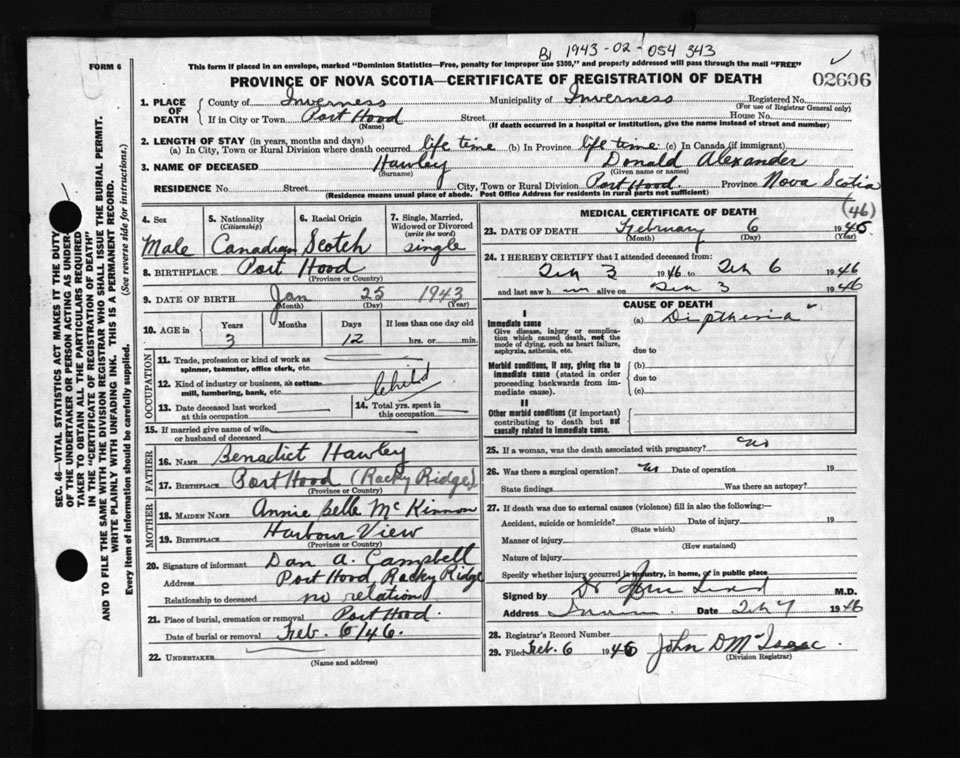 B1 1943-02-054 343
FORM 6
This form if placed in an envelope, marked "Dominion Statistics—Free, penalty for improper use $300," and properly addressed will pass through the mail "FREE"
PROVINCE OF NOVA SCOTIA—CERTIFICATE OF REGISTRATION OF DEATH
02606
1. PLACE OF DEATH County of Inverness Municipality of Inverness Registered No.
(For use of Registrar General only)
If in City or Town Port Hood Street House No.
(Name) (If death occurred in a hospital or institution, give the name instead of street and number)
2. LENGTH OF STAY (in years, months and days)
(a) In City, Town or Rural Division where death occurred life time (b) In Province life time (c) In Canada (if immigrant)
3. NAME OF DECEASED Hawley Donald Alexander
(Surname) (Given name or names)
RESIDENCE No. Street City, Town or Rural Division Port Hood Province Nova Scotia
(Residence means usual place of abode. Post Office Address for residents in rural parts not sufficient)
SEC. 46—VITAL STATISTICS ACT MAKES IT THE DUTY
OF THE UNDERTAKER OR PERSON ACTING AS UNDER-
TAKER TO OBTAIN ALL THE PARTICULARS REQUIRED
IN THE "CERTIFICATE OF REGISTRATION OF DEATH"
AND TO FILE THE SAME WITH THE DIVISION REGISTRAR WHO SHALL ISSUE THE BURIAL PERMIT.
WRITE PLAINLY WITH UNFADING INK. THIS IS A PERMANENT RECORD.
Every item of information should be carefully supplied. (See reverse side for instructions.)
4. Sex Male
5. Nationality (Citizenship) Canadian
6. Racial Origin Scotch
7. Single, Married, Widowed or Divorced (write the word) single
8. BIRTHPLACE Port Hood
(Province or Country)
9. DATE OF BIRTH Jan 25 1943
(Month) (Day) (Year)
10. AGE in Years Months Days If less than one day old
3 12 hrs. or min.
OCCUPATION
11. Trade, profession or kind of work as
spinner, teamster, office clerk, etc.
12. Kind of industry or business, as cotton-
mill, lumbering, bank, etc. Child
13. Date deceased last worked at this occupation
14. Total yrs. spent in this occupation
15. If married give name of wife or husband of deceased
FATHER
16. NAME Benadict Hawley
17. BIRTHPLACE Port Hood (Racky Ridge)
(Province or Country)
MOTHER
18. MAIDEN NAME Annie belle McKinnon
19. BIRTHPLACE Harbour View
(Province or Country)
20. Signature of informant Dan A. Campbell
Address Port Hood, Racky Ridge
Relationship to deceased no relation
21. Place of burial, cremation or removal Port Hood.
Date of burial or removal Feb. 6/46.
22. UNDERTAKER
(Name and address)
MEDICAL CERTIFICATE OF DEATH
(46)
23. DATE OF DEATH February 6 1945
(Month) (Day) (Year)
24. I HEREBY CERTIFY that I attended deceased from:
Feb 3 1946 to Feb 6 1946
and last saw h im alive on Feb 3 1946
CAUSE OF DEATH
I
Immediate cause (a) Diptheria
Give disease, injury or complica-
tion which caused death, not the
mode of dying, such as heart failure,
asphyxia, asthenia, etc. due to
Morbid conditions, if any, giving rise to (b)
immediate cause (stated in order due to
proceeding backwards from im-
mediate cause). (c)
II
Other morbid conditions (if important)
contributing to death but not
causally related to immediate cause.
25. If a woman, was the death associated with pregnancy? No
26. Was there a surgical operation? No Date of operation 19
State findings Was there an autopsy?
27. If death was due to external causes (violence) fill in also the following:—
Accident, suicide or homicide? Date of injury 19
(State which)
Manner of injury
(How sustained)
Nature of injury
Specify whether injury occurred in industry, in home, or in public place
Signed by Dr M.D.
Address Date Feb 7 1946
28. Registrar's Record Number
29. Filed Feb. 6 1945 John D McIsaac.
(Division Registrar)